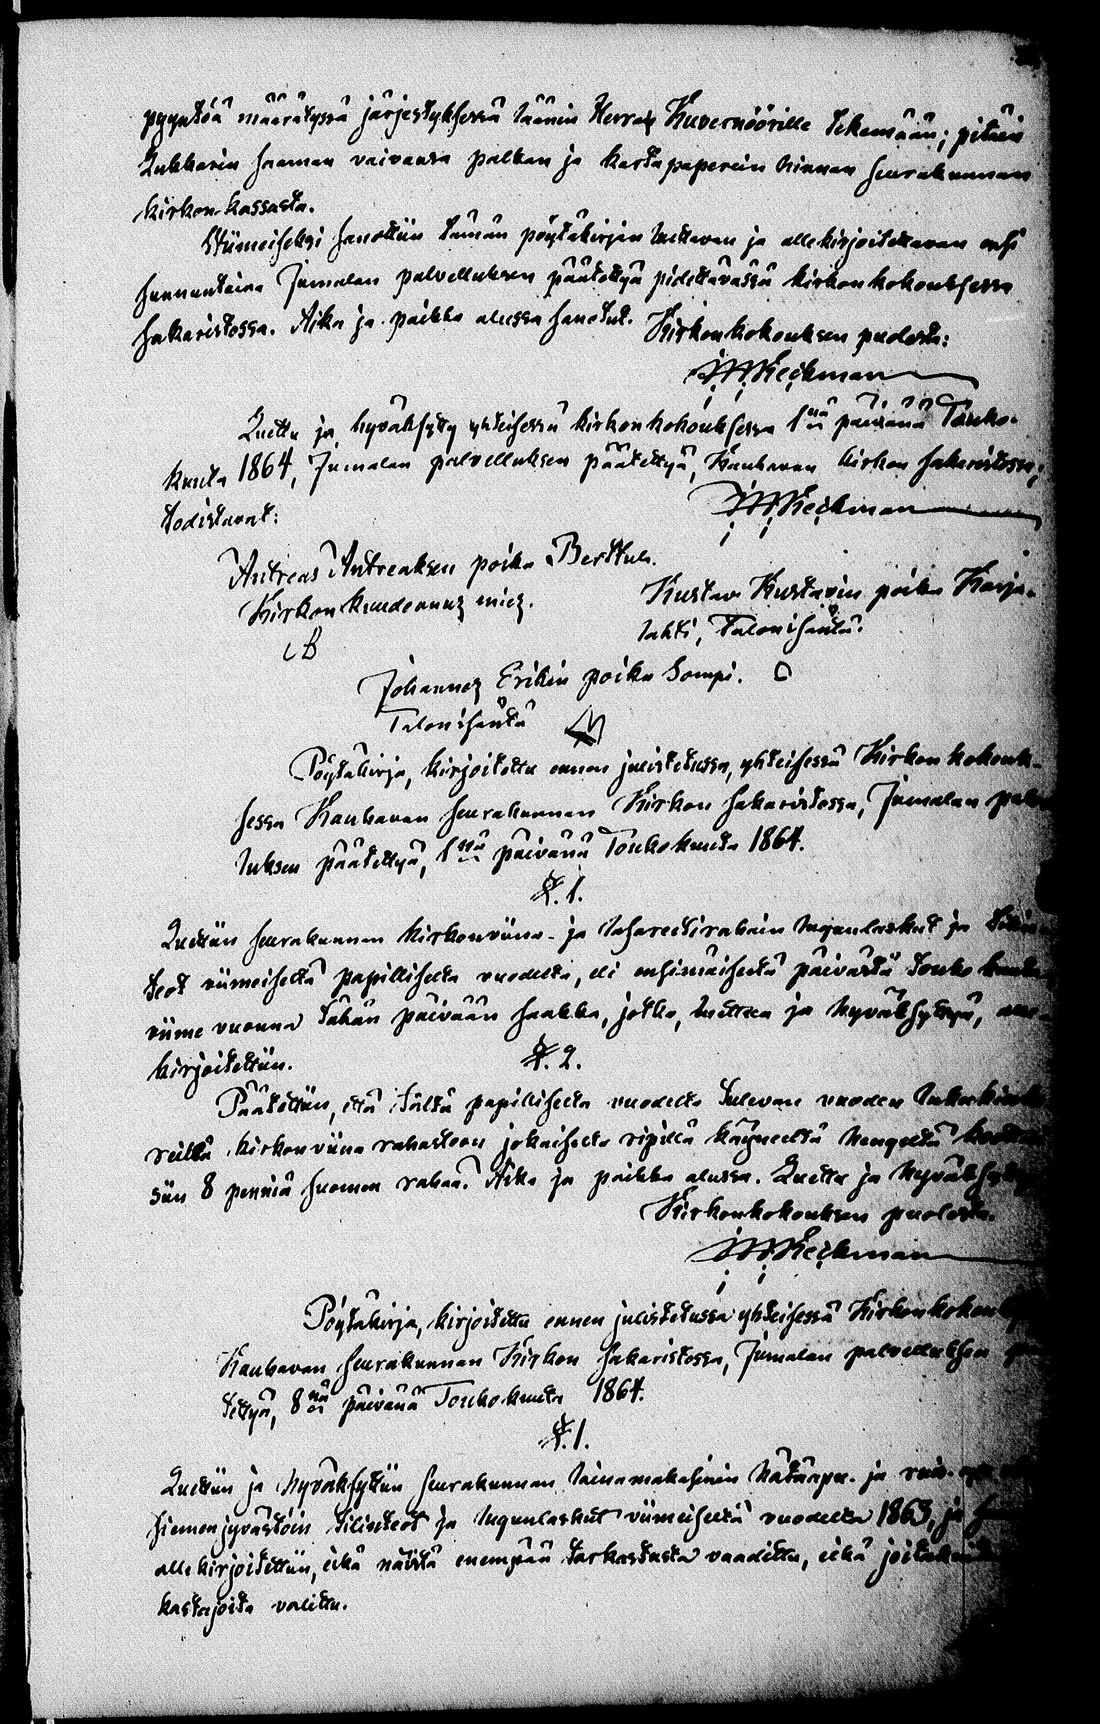 pyyntöä määrätyssä järjestyksessä läänin Herra Kuvernöörille tekemään; pitäin
Lukkarin saaman vaivansa palkan ja kartapaperein hinnan seurakunnan
kirkon kassasta.
Viimeiseksi sanottiin tämän pöytäkirjan luettavan ja allekirjoitettavan ensi
sunnuntaina Jumalan palvelluksen päätettyä pidettävässä kirkonkokouksessa
sakaristossa. Aika ja paikka alussa sanotut. Kirkonkokouksen puolesta:
Keckman
Luettu ja hyväksytty yhteisessä kirkonkokouksessa 1nä päivänä Touko-
kuuta 1864, Jumalan palvelluksen päätettyä, Kauhavan kirkon sakaristossa;
todistavat:
Keckman
Antreas Antreaksen poika Berttula.
Kirkonkuudennus mies.
Kustav Kustavin poika Karja-
lahti, Talonisäntä.
Johannes Erikin poika Sompi.
Talonisäntä
Pöytäkirja, kirjoitettu ennen julistetussa, yhteisessä Kirkonkokouk-
sessa Kauhavan seurakunnan Kirkon sakaristossa, Jumalan
luksen päätettyä, 1nä päivänä Toukokuuta 1864.
§. 1.
Luettiin seurakunnan kirkonviina- ja lasareetirahain lugunlaskut ja
teot viimeiseltä papilliselta vuodelta, eli ensimäisestä päivästä Toukokuuta
viime vuonna tähän päivään saakka, jotka, luettua ja hyväksyttyä,
kirjoitettiin.
§. 2.
Päätettiin, että tältä papilliselta vuodelta tulevan vuoden
reillä kirkonviina rahastoon jokaiselta ripillä käyneeltä hengeltä
siin 8 penniä suomen rahaa. Aika ja paikka alussa. Luettu ja
Kirkonkokouksen puolesta.
Keckman
Pöytäkirja, kirjoitettu ennen julistetussa yhteisessä
Kauhavan seurakunnan Kirkon sakaristossa, Jumalan palvelluksen
tettyä, 8nä päivänä Toukokuuta 1864.
§. 1.
Luettiin ja hyväksyttiin seurakunnan lainamakasiinin hätäapu- ja
siemenjyvästöin tilinteot ja lugunlaskut viimeiseltä vuodelta 1863, ja
allekirjoitettiin, eikä näistä enempää tarkastusta vaadittu, eikä
kastajoita valittu.